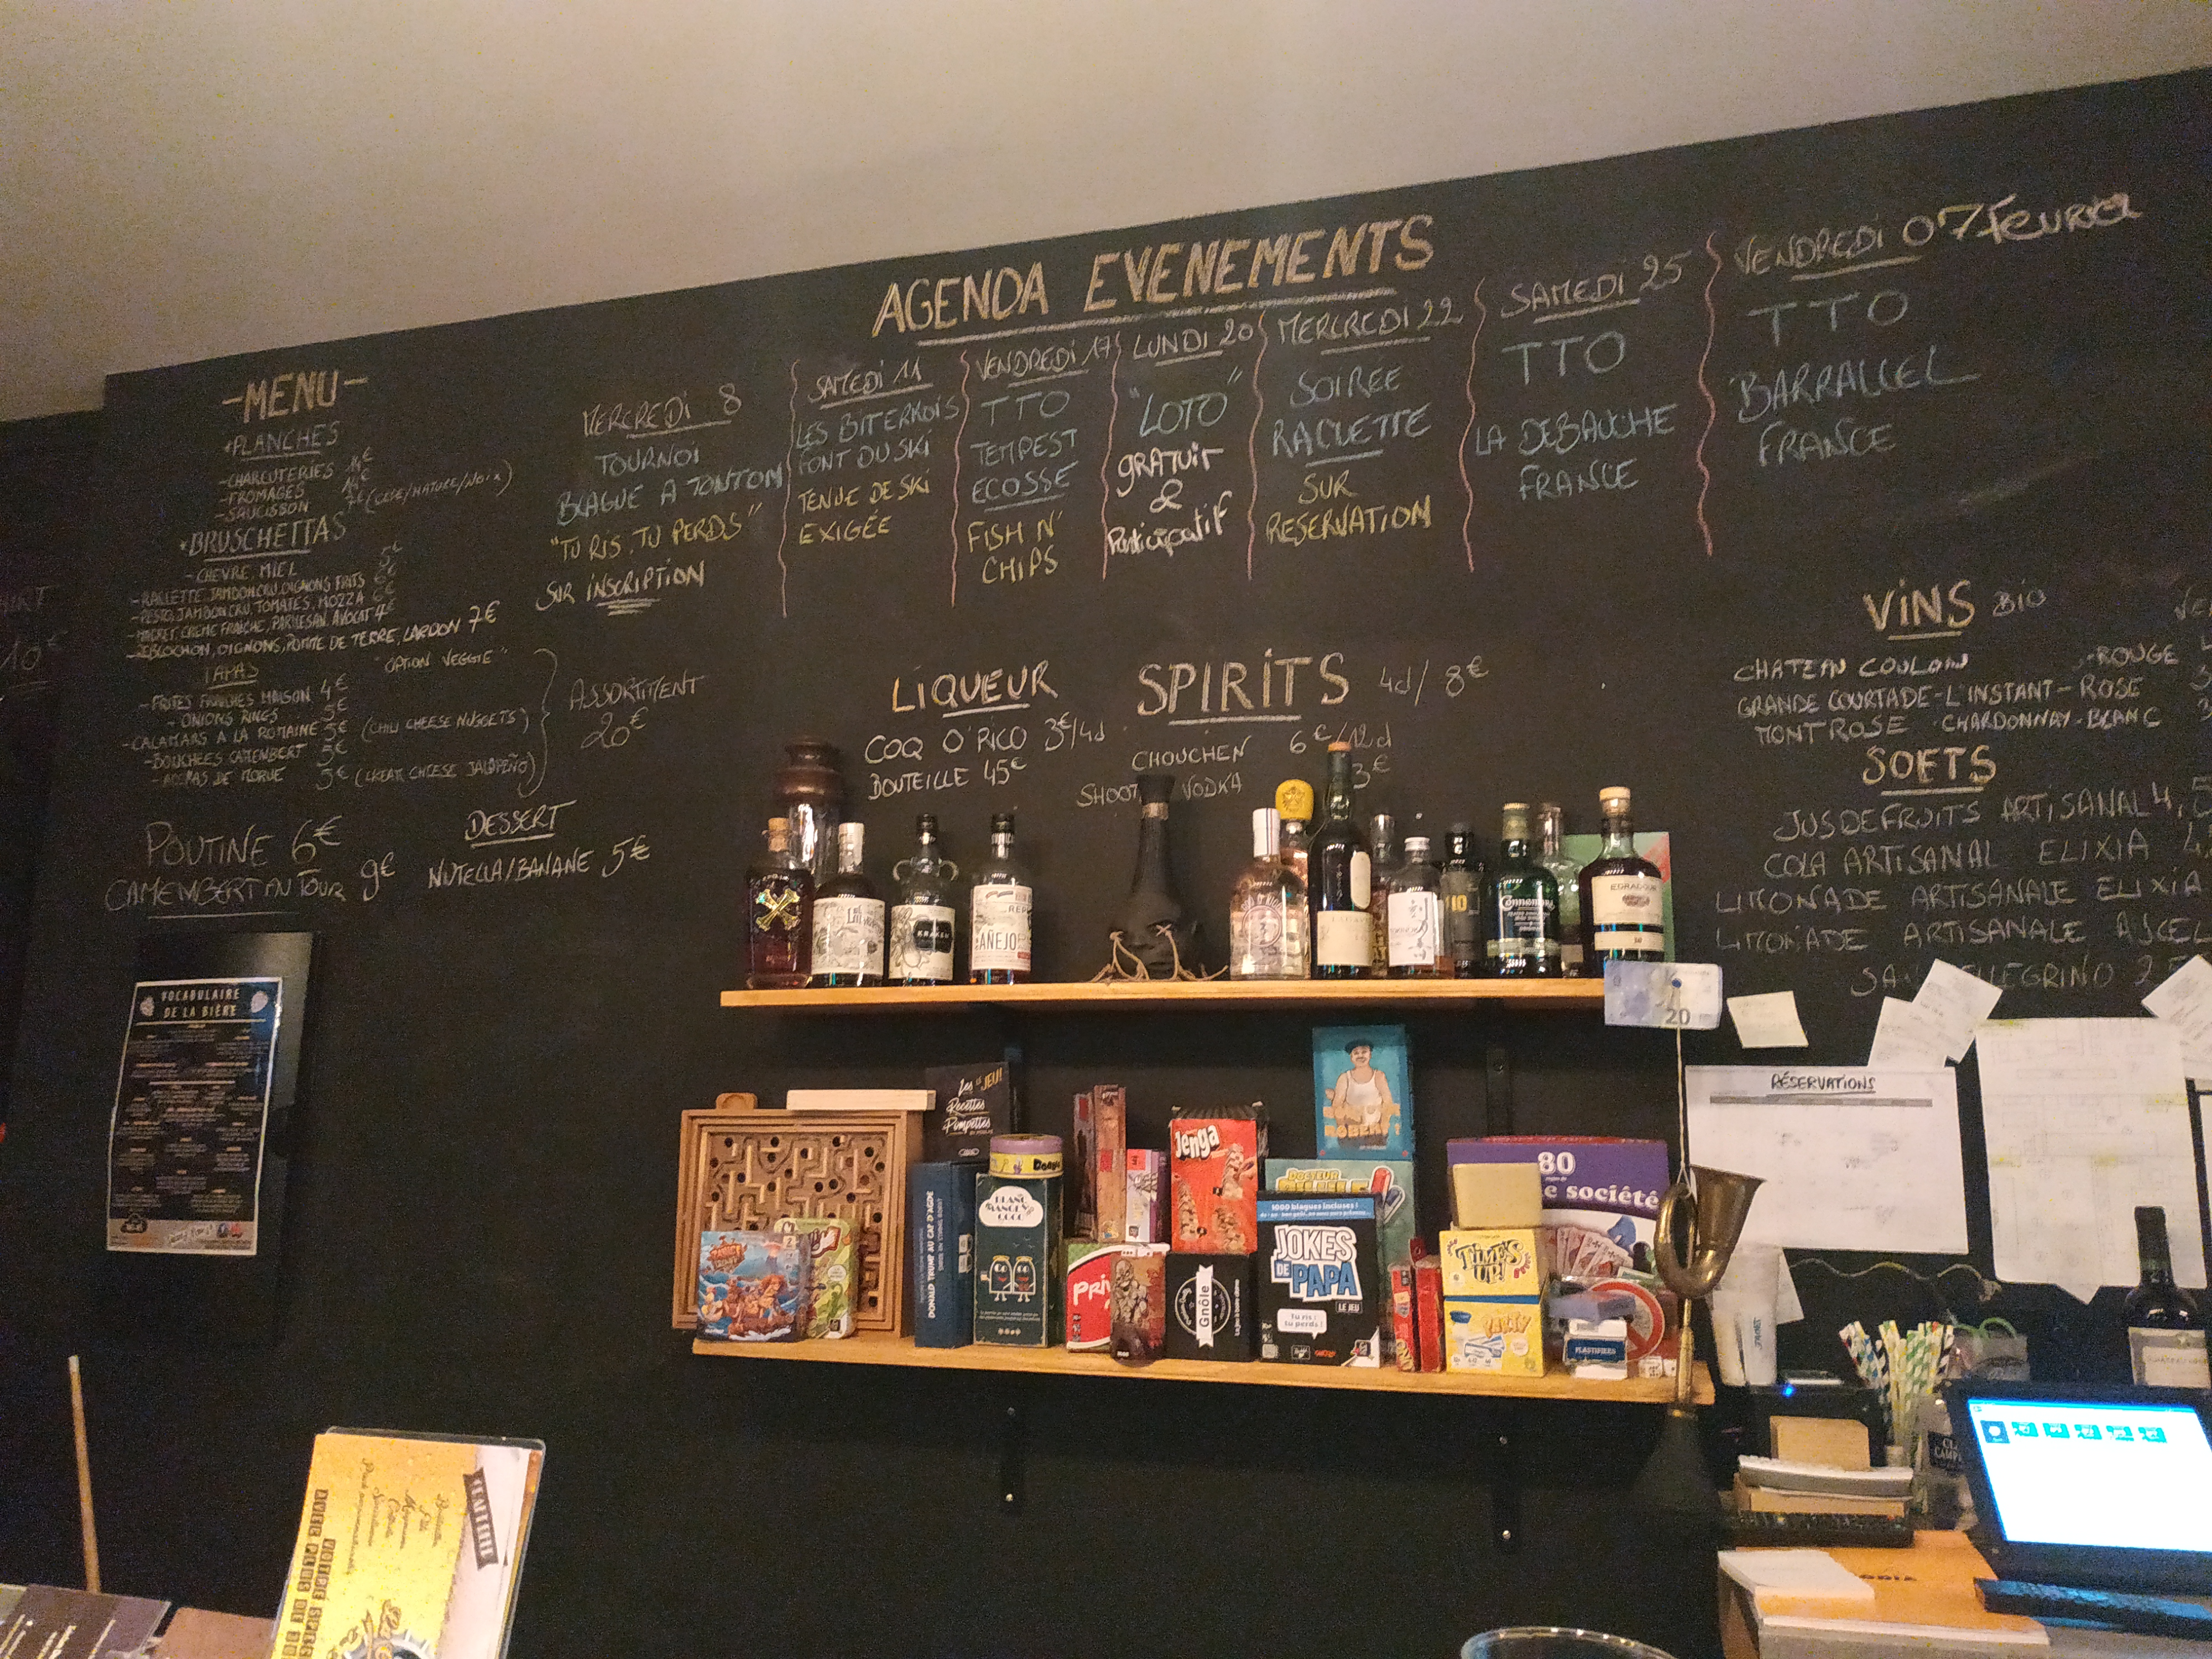 AGENDA EVENEMENTS
-MENU-
*PLANCHES
-CHARCUTERIES 14€
-FROMAGES 14€
-SAUCISSON 7€ (CEPE/NATURE/NOIX)
*BRUSCHETTAS
-CHEVRE, MIEL 5€
-RACLETTE, JAMBON CRU, OIGNONS FRITS 6€
-PESTO, JAMBON CRU, TOMATES, MOZZA 6€
-MAGRET, CREME FRAICHE, PARMESAN, AVOCAT 7€
-REBLOCHON, OIGNONS, POMME DE TERRE, LARDON 7€
TAPAS "OPTION VEGGIE"
-FRITES FRAICHES MAISON 4€
-ONIONS RINGS 5€
-CALAMARS A LA ROMAINE 5€ (CHILI CHEESE NUGGETS)
-BOUCHEES CAMEMBERT 5€
-ACCRAS DE MORUE 5€ (CREAM CHEESE JALAPEÑO)
ASSORTIMENT
20€
POUTINE 6€
CAMEMBERT AU FOUR 9€
DESSERT
NUTELLA/BANANE 5€
MERCREDI 8
TOURNOI
BLAGUE A TONTON
"TU RIS, TU PERDS"
SUR INSCRIPTION
SAMEDI 11
LES BITERROIS
FONT DU SKI
TENUE DE SKI
EXIGÉE
VENDREDI 17
TTO
TEMPEST
ECOSSE
FISH N'
CHIPS
LUNDI 20
"LOTO"
GRATUIT
&
Participatif
MERCREDI 22
SOIRÉE
RACLETTE
SUR
RESERVATION
SAMEDI 25
TTO
LA DEBAUCHE
FRANCE
VENDREDI 07 Fevrier
TTO
BARRALLEL
FRANCE
LIQUEUR
COQ O'RICO 3€/4d
BOUTEILLE 45€
SPIRITS 4d/8€
CHOUCHEN 6€/12d
SHOOT VODKA 3€
VINS BIO
CHATEAU COULON -ROUGE
GRANDE COURTADE-L'INSTANT-ROSE
MONTROSE -CHARDONNAY-BLANC
SOFTS
JUS DE FRUITS ARTISANAL 4,5
COLA ARTISANAL ELIXIA 4
LIMONADE ARTISANALE ELIXIA
LIMONADE ARTISANALE
PELLEGRINO
KRAKEN
AÑEJO
Connemara
10
EDRADOUR
20
VOCABULAIRE
DE LA BIÈRE
RÉSERVATIONS
Les Recettes Pompettes
LE JEU!
DONALD TRUMP AU CAP D'AGDE
BLANC
MANGER
COCO
Jenga
Gnôle
ROBERT?
DOCTEUR
1000 blagues incluses!
JOKES
DE PAPA
LE JEU
Tu ris :
tu perds !
80
de société
TIME'S UP!
PARTY
VOTRE
AVEC PLUS DE